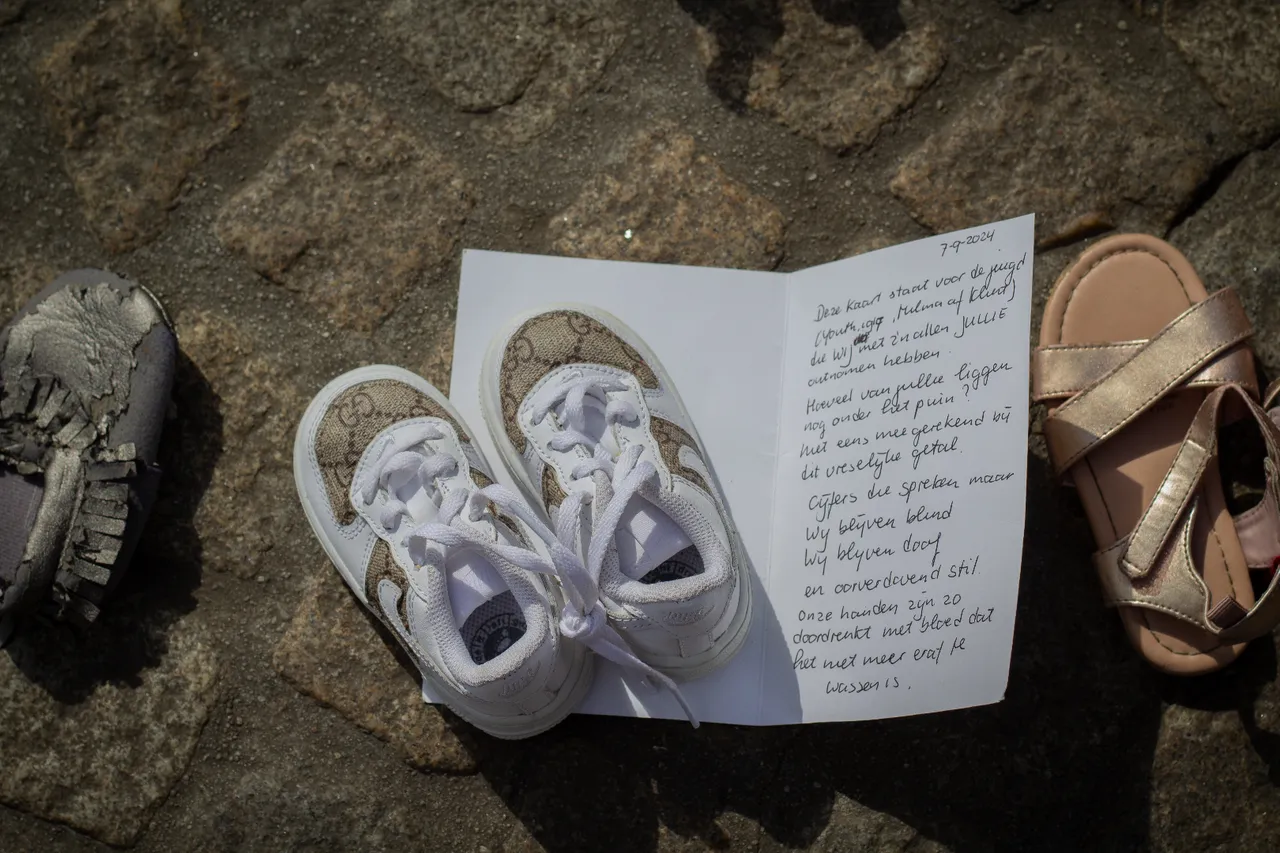 7-9-2024
Deze kaart staat voor de jeugd
(Youth, 1907, Hilma af Klint)
die wij met z'n allen JULLIE
ontnomen hebben.
Hoeveel van jullie liggen
nog onder het puin?
niet eens mee gerekend bij
dit vreselijke getal.
Cijfers die spreken maar
Wij blijven blind
Wij blijven doof
en oorverdovend stil.
Onze handen zijn zo
doordrenkt met bloed dat
het niet meer eraf te
wassen is.